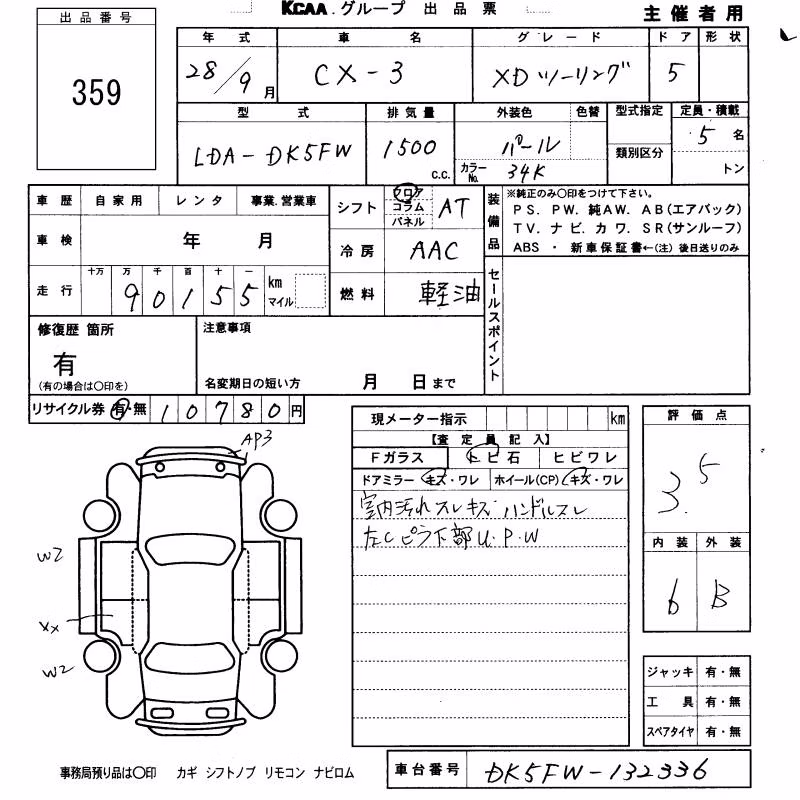 KCAA.グループ 出品票
主催者用
出品番号
359
年式 車名 グレード ドア 形状
28/9月 CX-3 XDツーリング 5
型式 排気量 外装色 色替 型式指定 定員・積載
LDA-DK5FW 1500 c.c. パール 5名
カラーNo. 34K 類別区分 トン
車歴 自家用 レンタ 事業.営業車
シフト フロア コラム パネル AT
車検 年 月
冷房 AAC
走行 十万 万 千 百 十 一 km マイル
90155
燃料 軽油
装備品
※純正のみ〇印をつけて下さい。
PS. PW. 純AW. AB(エアバック)
TV. ナビ. カワ. SR(サンルーフ)
ABS ・ 新車保証書←(注) 後日送りのみ
セールスポイント
修復歴 箇所
有
(有の場合は〇印を)
注意事項
名変期日の短い方 月 日まで
リサイクル券 有・無 10780円
現メーター指示 km
【査定員記入】
Fガラス トビ石 ヒビワレ
ドアミラー キズ・ワレ ホイール(CP) キズ・ワレ
室内汚れスレキズ ハンドルスレ
左Cピラ下部U.P.W
評価点
3.5
内装 外装
6 B
AP3
W2
XX
W2
ジャッキ 有・無
工具 有・無
スペアタイヤ 有・無
事務局預り品は〇印 カギ シフトノブ リモコン ナビロム
車台番号 DK5FW-132336